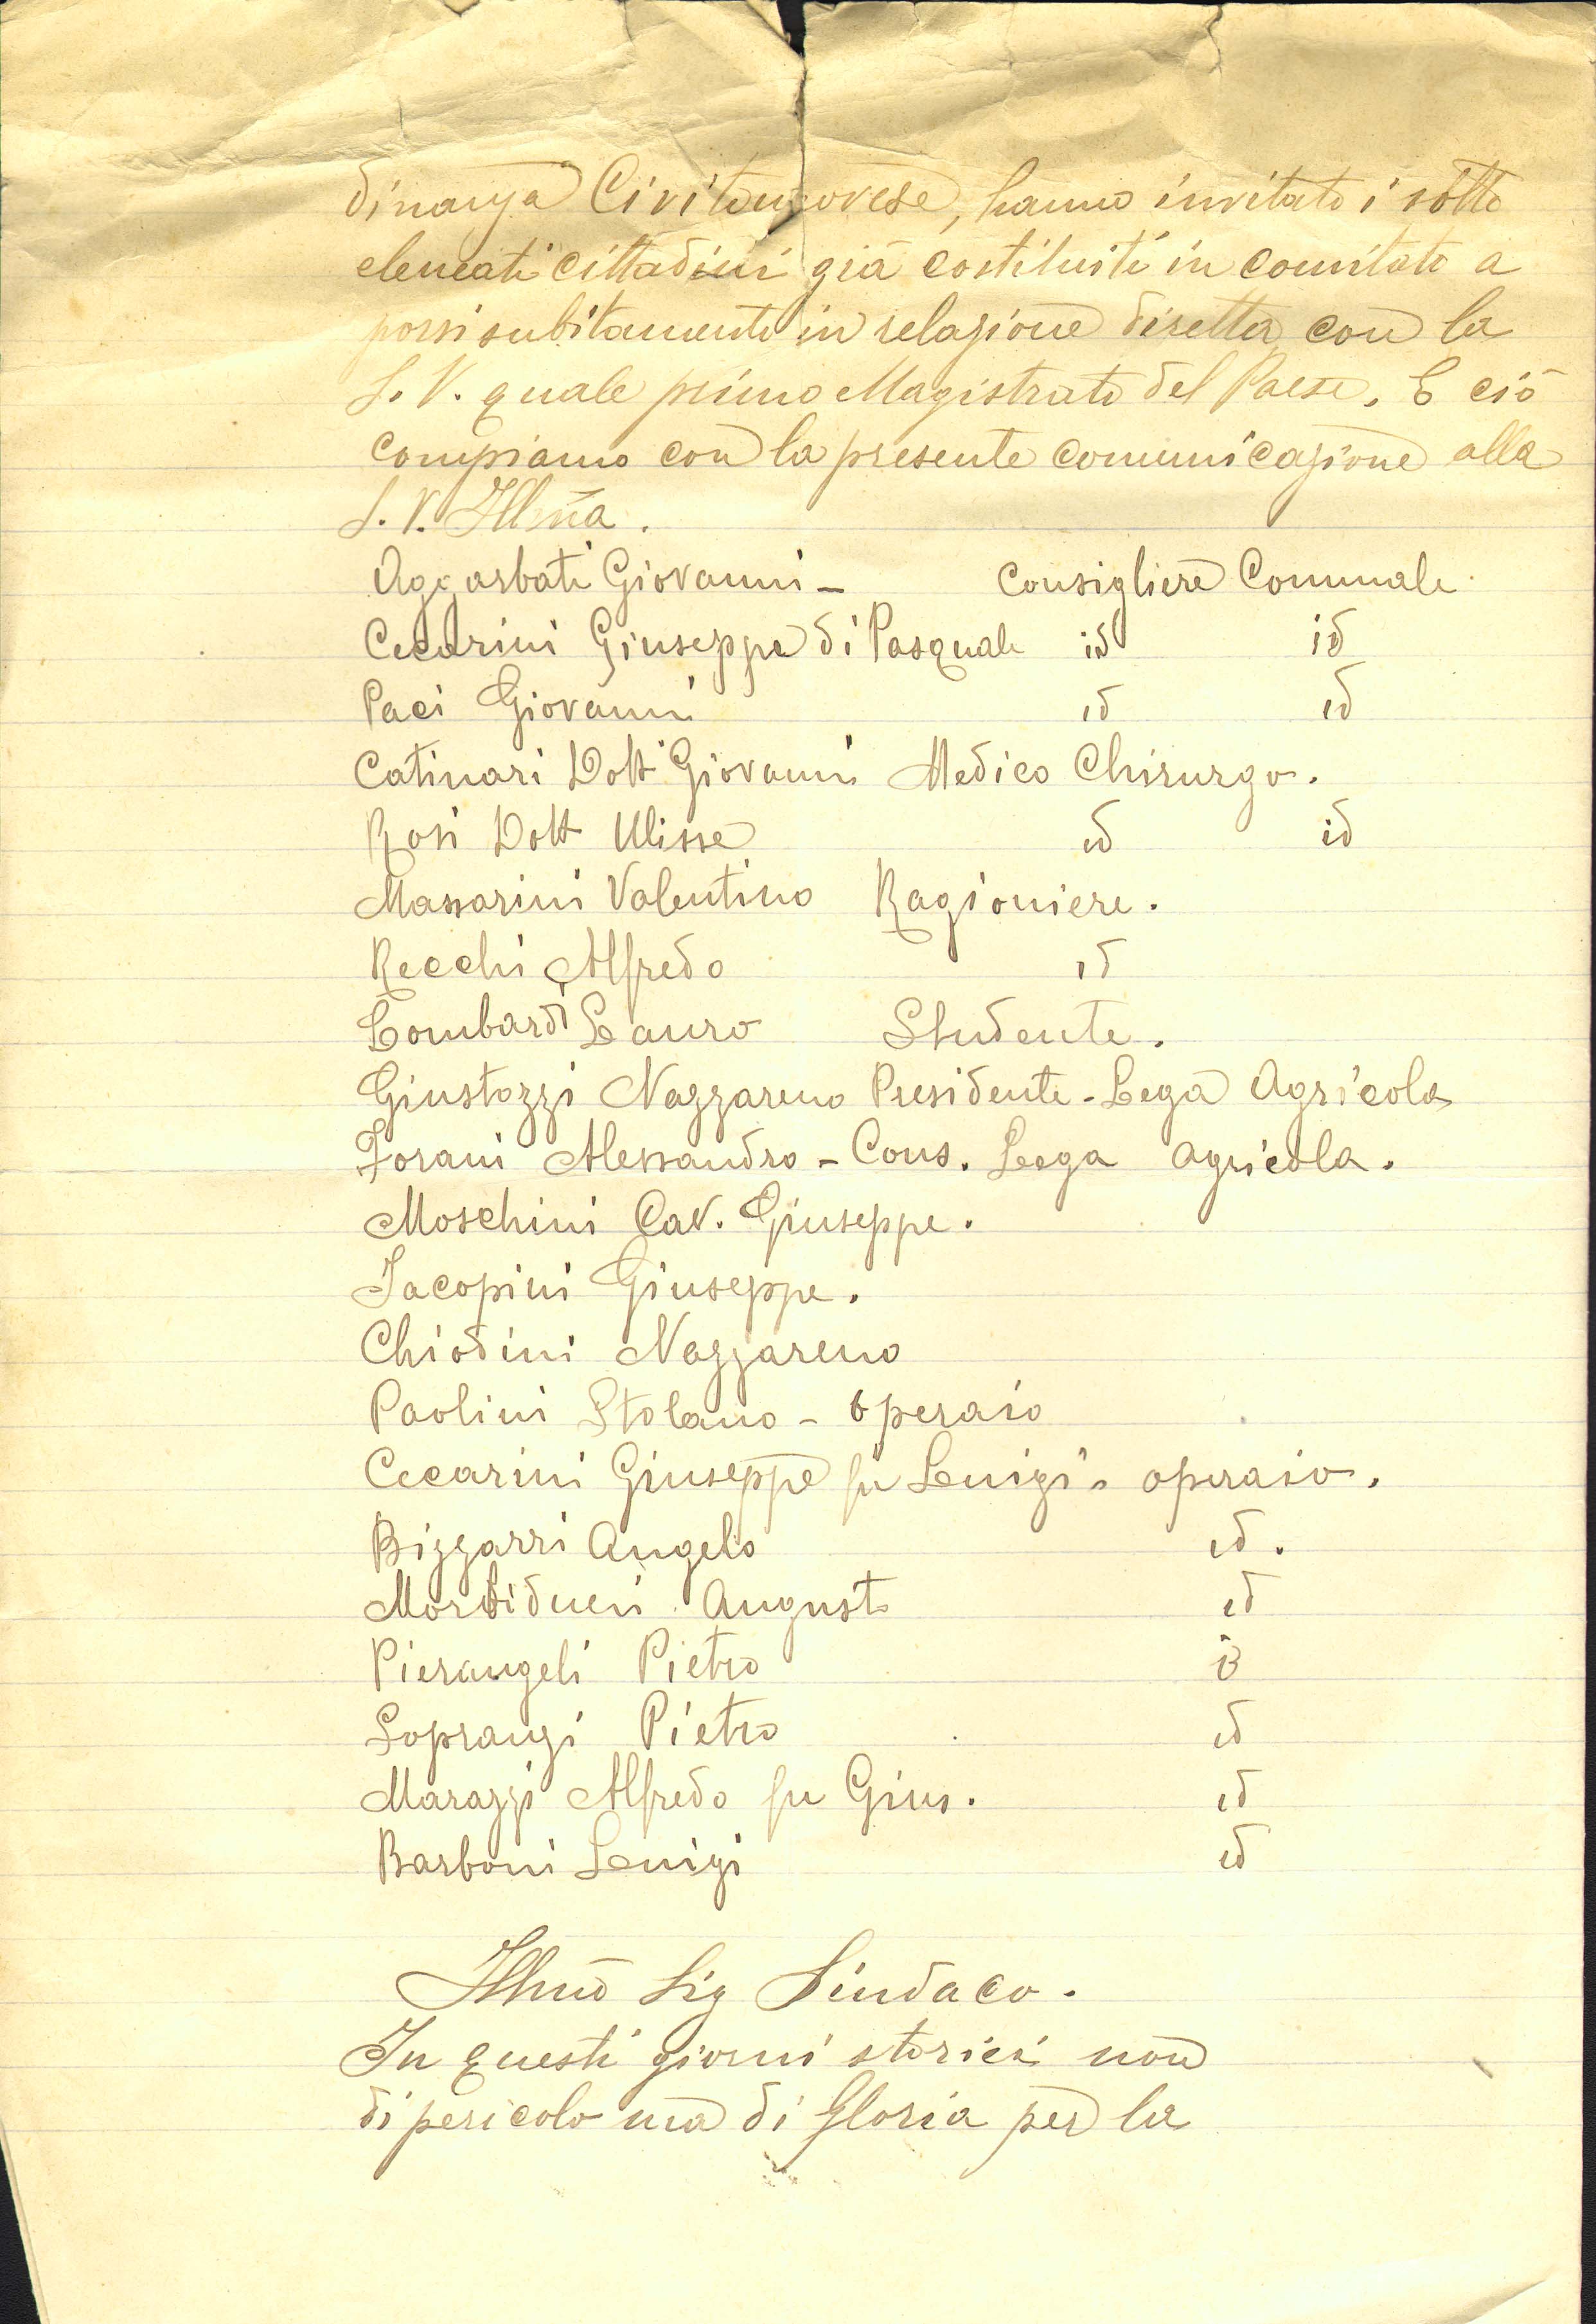 dinanza Civitanovese, hanno invitato i sotto
elencati cittadini già costituiti in comitato a
porsi subitamente in relazione diretta con la
S. V. quale primo Magistrato del Paese. E ciò
compiamo con la presente comunicazione alla
S. V. Illma.
Aggarbati Giovanni - Consigliere Comunale.
Cecarini Giuseppe di Pasquale id id
Paci Giovanni id id
Catinari Dott Giovanni Medico Chirurgo.
Rosi Dott Ulisse id id
Massarini Valentino Ragioniere.
Recchi Alfredo id
Lombardi Lauro Studente.
Giustozzi Nazzareno Presidente - Lega Agricola
Forani Alessandro - Cons. Lega agricola.
Moschini Cav. Giuseppe.
Jacopini Giuseppe.
Chiodini Nazzareno
Paolini Stolano - operaio
Cecarini Giuseppe fu Luigi - operaio.
Bizzarri Angelo id.
Morbiducci Augusto id
Pierangeli Pietro id
Sopranzi Pietro id
Marazzi Alfredo fu Gius. id
Barboni Luigi id
Illmo Sig Sindaco.
In questi giorni storici non
di pericolo ma di Gloria per la